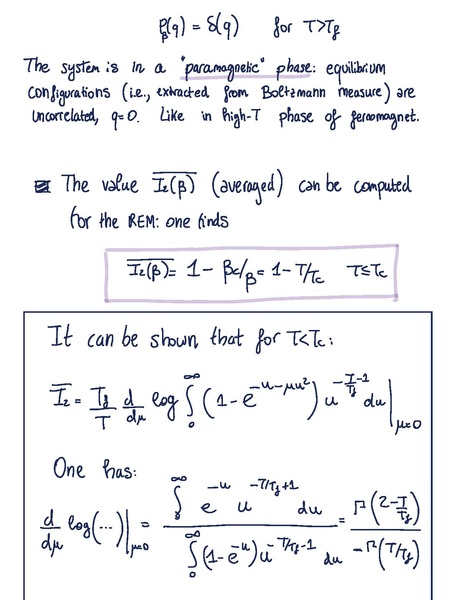 P_β(q) = δ(q) for T>T_f
The system is in a "paramagnetic" phase: equilibrium
configurations (i.e., extracted from Boltzmann measure) are
uncorrelated, q=0. Like in high-T phase of ferromagnet.
The value \overline{I_2(β)} (averaged) can be computed
for the REM: one finds
\overline{I_2(β)} = 1 - β_c/β = 1 - T/T_c T≤T_c
It can be shown that for T<T_c:
\overline{I_2} = T_f/T d/dμ log ∫_0^∞ (1-e^{-u-μu²}) u^{-T/T_f-1} du |_{μ=0}
One has:
d/dμ log(...)|_{μ=0} = ∫_0^∞ e^{-u} u^{-T/T_f+1} du / ∫_0^∞ (1-e^{-u}) u^{-T/T_f-1} du = Γ(2-T/T_f) / -Γ(T/T_f)